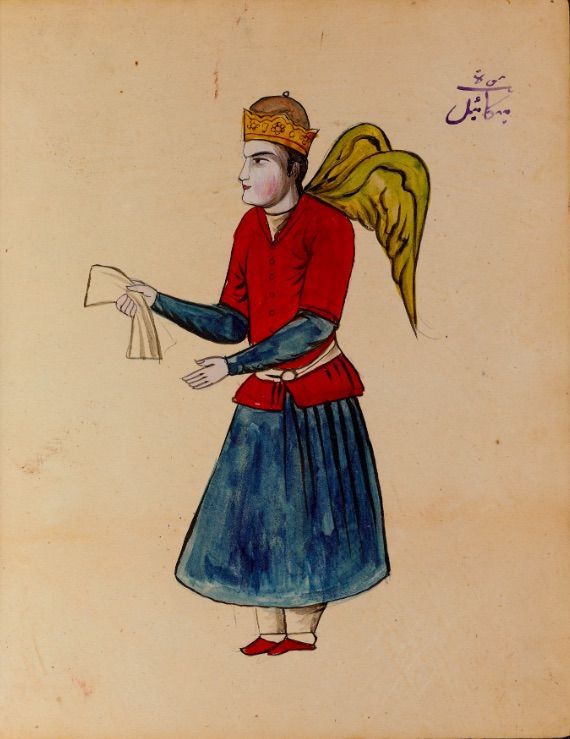 میکائیل